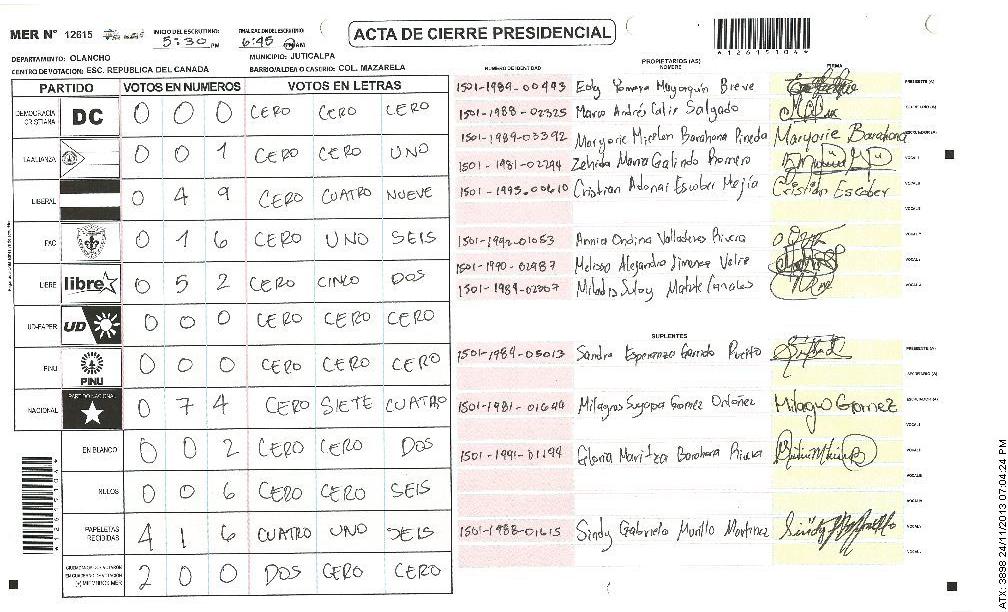 MER N° 12615
INICIO DEL ESCRUTINIO: 5:30 PM
FINALIZACION DEL ESCRUTINIO: 6:45
ACTA DE CIERRE PRESIDENCIAL
DEPARTAMENTO: OLANCHO
MUNICIPIO: JUTICALPA
CENTRO DE VOTACION: ESC. REPUBLICA DEL CANADA
BARRIO/ALDEA O CASERIO: COL. MAZARELA
PARTIDO VOTOS EN NUMEROS VOTOS EN LETRAS
DEMOCRACIA CRISTIANA DC 0 0 0 CERO CERO CERO
LA ALIANZA 0 0 1 CERO CERO UNO
LIBERAL 0 4 9 CERO CUATRO NUEVE
PAC 0 1 6 CERO UNO SEIS
LIBRE libre 0 5 2 CERO CINCO DOS
UD-FAPER UD 0 0 0 CERO CERO CERO
PINU PINU 0 0 0 CERO CERO CERO
NACIONAL PARTIDO NACIONAL 0 7 4 CERO SIETE CUATRO
EN BLANCO 0 0 2 CERO CERO DOS
NULOS 0 0 6 CERO CERO SEIS
PAPELETAS RECIBIDAS 4 1 6 CUATRO UNO SEIS
2 0 0 DOS CERO CERO
NUMERO DE IDENTIDAD PROPIETARIOS (AS) NOMBRE FIRMA
1501-1984-00493 Edy Yomara Mayorquin Breve PRESIDENTE (A)
1501-1988-02325 Marco Andrés Calix Salgado SECRETARIO (A)
1501-1989-03392 Maryorie Micelan Barahona Pineda Maryorie Barahona ESCRUTADOR (A)
1501-1981-02294 Zehida Maria Galindo Romero VOCAL I
1501-1993-00610 Cristian Adonai Escober Mejía Cristian Escober
1501-1992-01053 Annia Ondina Valladares Rivera
1501-1990-02987 Melissa Alejandra Jimenez
1501-1989-02807 Suloy Matute Canales
SUPLENTES
1501-1984-05013 Sandra Esperanza Garrido PRESIDENTE (A)
SECRETARIO (A)
1501-1981-01644 Milagros Suyapa Gomez Ordoñez Milagro Gomez ESCRUTADOR (A)
1501-1991-01194 Gloria Maritza Barahona Rivera
1501-1988-01615 Sindy Gabriela Murillo Martinez
ATX: 3898 24/11/2013 07:04:24 PM